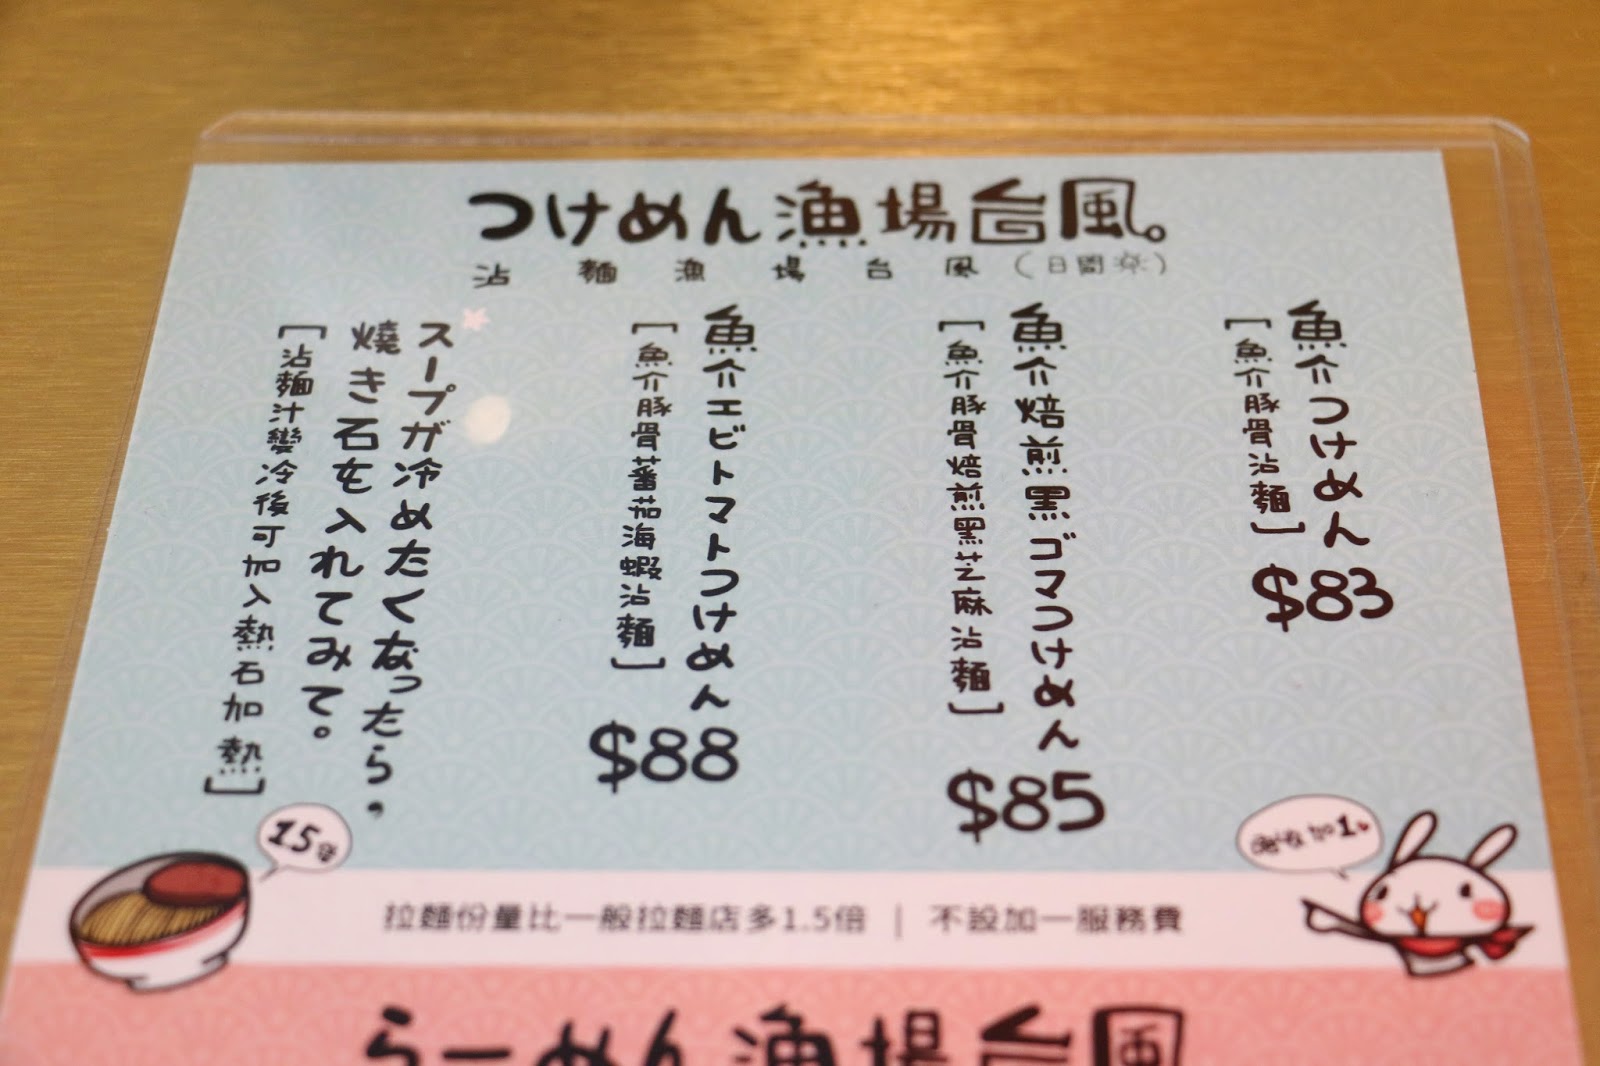 つけめん漁場台風。
沾麵漁場台風
魚介つけめん
[魚介豚骨沾麵]
$83
魚介焙煎黒ゴマつけめん
[魚介豚骨焙煎黑芝麻沾麵]
$85
魚介エビトマトつけめん
[魚介豚骨蕃茄海蝦沾麵]
$88
スープが冷めたくなったら,
燒き石を入れてみて。
[沾麵汁變冷後可加入熱石加熱]
1.5倍
加1
拉麵份量比一般拉麵店多1.5倍 | 不設加一服務費
らーめん漁場台風